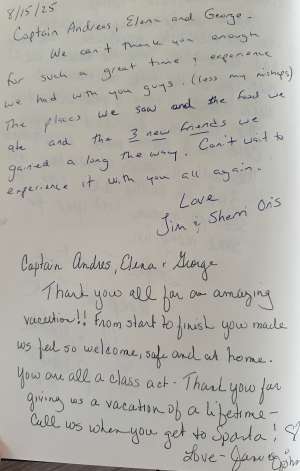 8/15/25
Captain Andreas, Elena and George.
We can't thank you enough
for such a great time & experience
we had with you guys. (less my mishaps)
The places we saw and the food we
ate and the 3 new friends we
gained a long the way. Can't wait to
experience it with you all again.
Love
Jim & Sherri Oris
Captain Andres, Elena & George
Thank you all for an amazing
vacation!! From start to finish you made
us feel so welcome, safe and at home.
You are all a class act - Thank you for
giving us a vacation of a lifetime -
Call us when you get to Sparta!
Love - Janice &
John